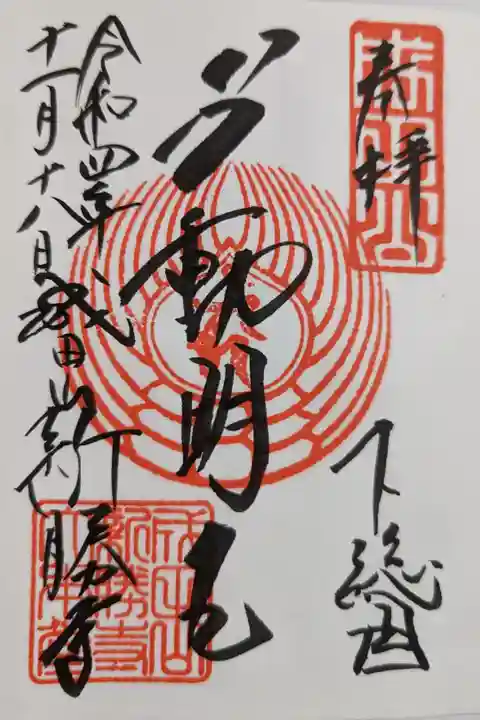 奉拝
成田山
下総国
不動明王
成田山新勝寺
令和四年
十一月十八日
成田山
新勝寺